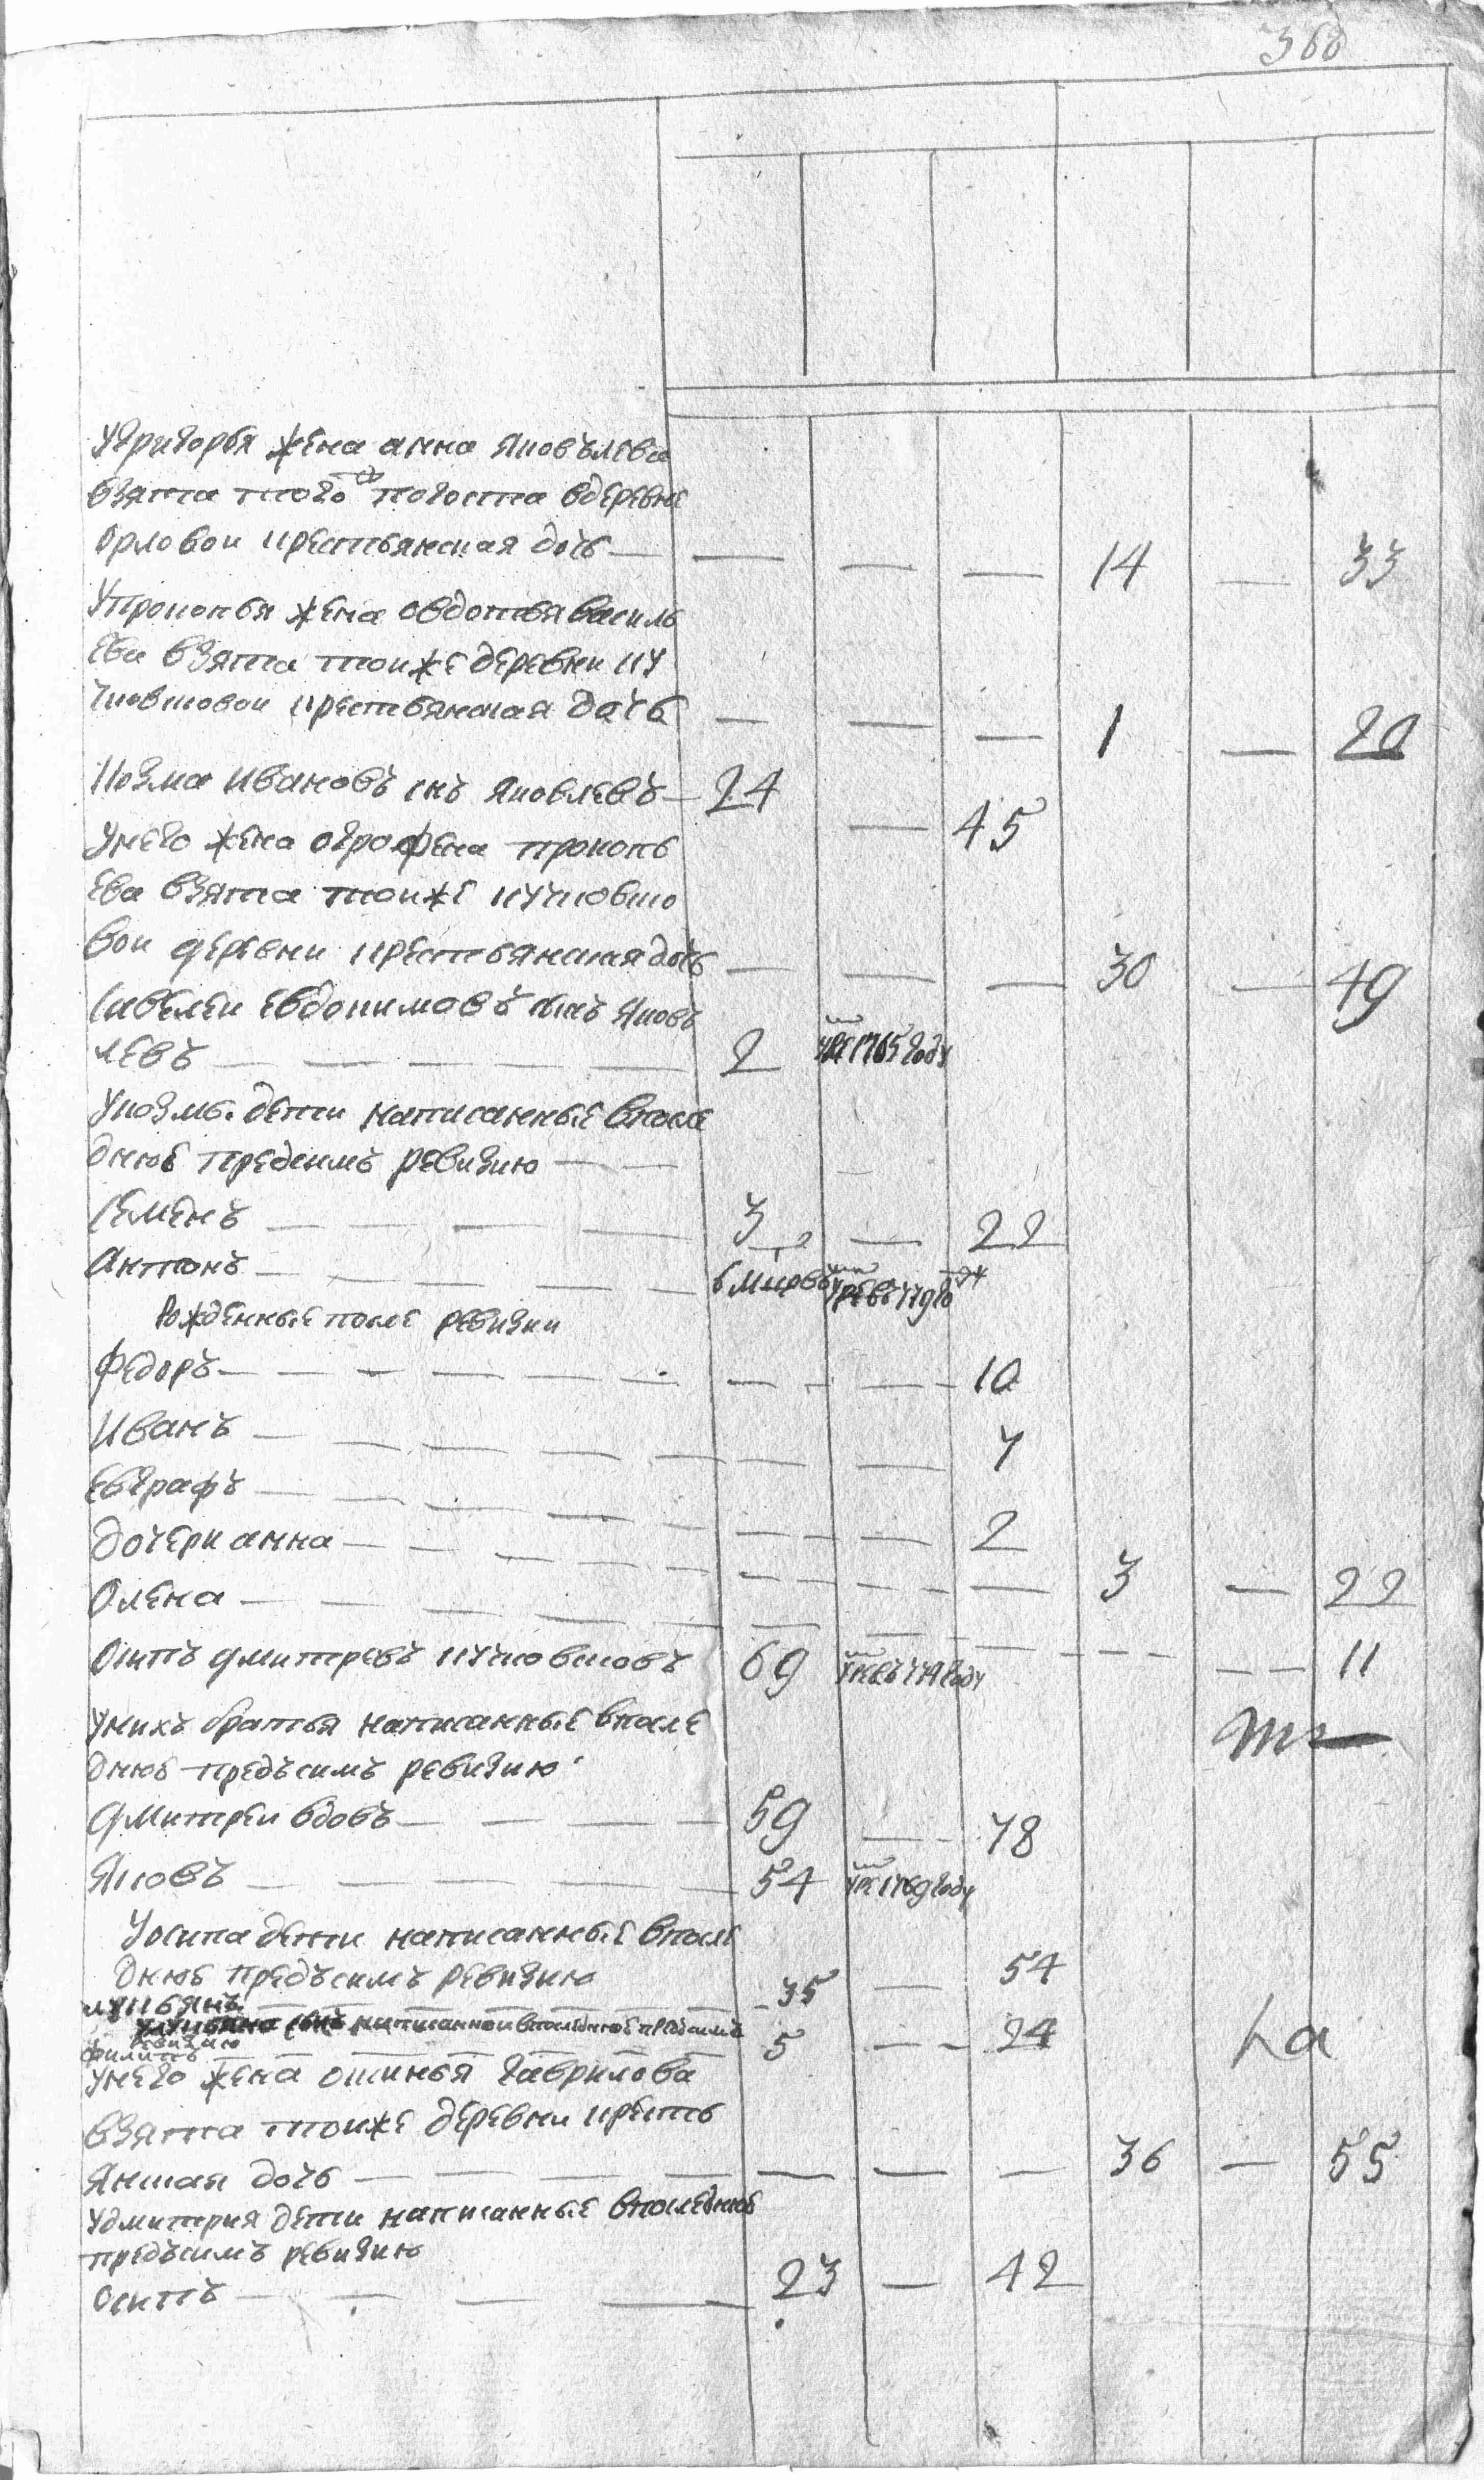 368
Угригорья жена анна яковълева
взята того ж погоста вдеревне
орловои крестьянская дочь — — — — 14 — 33
Упрокопья жена овдотья василь
ева взята тоиже деревни ку
чковсковои крестьянская дочь — — — 1 — 20
Козма Ивановъ снъ яковлевъ — 24 — 45
Унего жена ографена прокопь
ева взята тоиже кучковско
вои деревни крестьянская дочь — — — 30 — 49
Савелеи евдокимовъ снъ яковъ
левъ — — — — 2 1765 году
Укозмы дети написанные впосле
днюю предсимъ ревизию — —
Семенъ — — — — 3 — 22
Антонъ — — — —
Рожденные после ревизии
Федоръ — — — — — — — — — 10
Иванъ — — — — — — — 7
Евграфъ — — — — — — — 2
Дочери анна — — — — — — — — 3 — 22
Олена — — — — — — — — — — — — 11
Осипъ дмитревъ кучковсковъ 69 году
Унихъ братья написанные впосле
днюю предъсимъ ревизию
Дмитреи вдовъ — — — — 59 — 78
Яковъ — — — — 54 1769 году
Уосипа дети написанные впосле
днюю предъсимъ ревизию
лукьянъ — — — — — 35 — 54
написанной впоследнюю предсимъ
ревизию
филипъ — — — — — 5 — 24
Унего жена оксинья гаврилова
взята тоиже деревни кресть
янская дочь — — — — — — — 36 — 55
Удмитрия дети написанные впоследнюю
предъсимъ ревизию
Осипъ — — — — 23 — 42